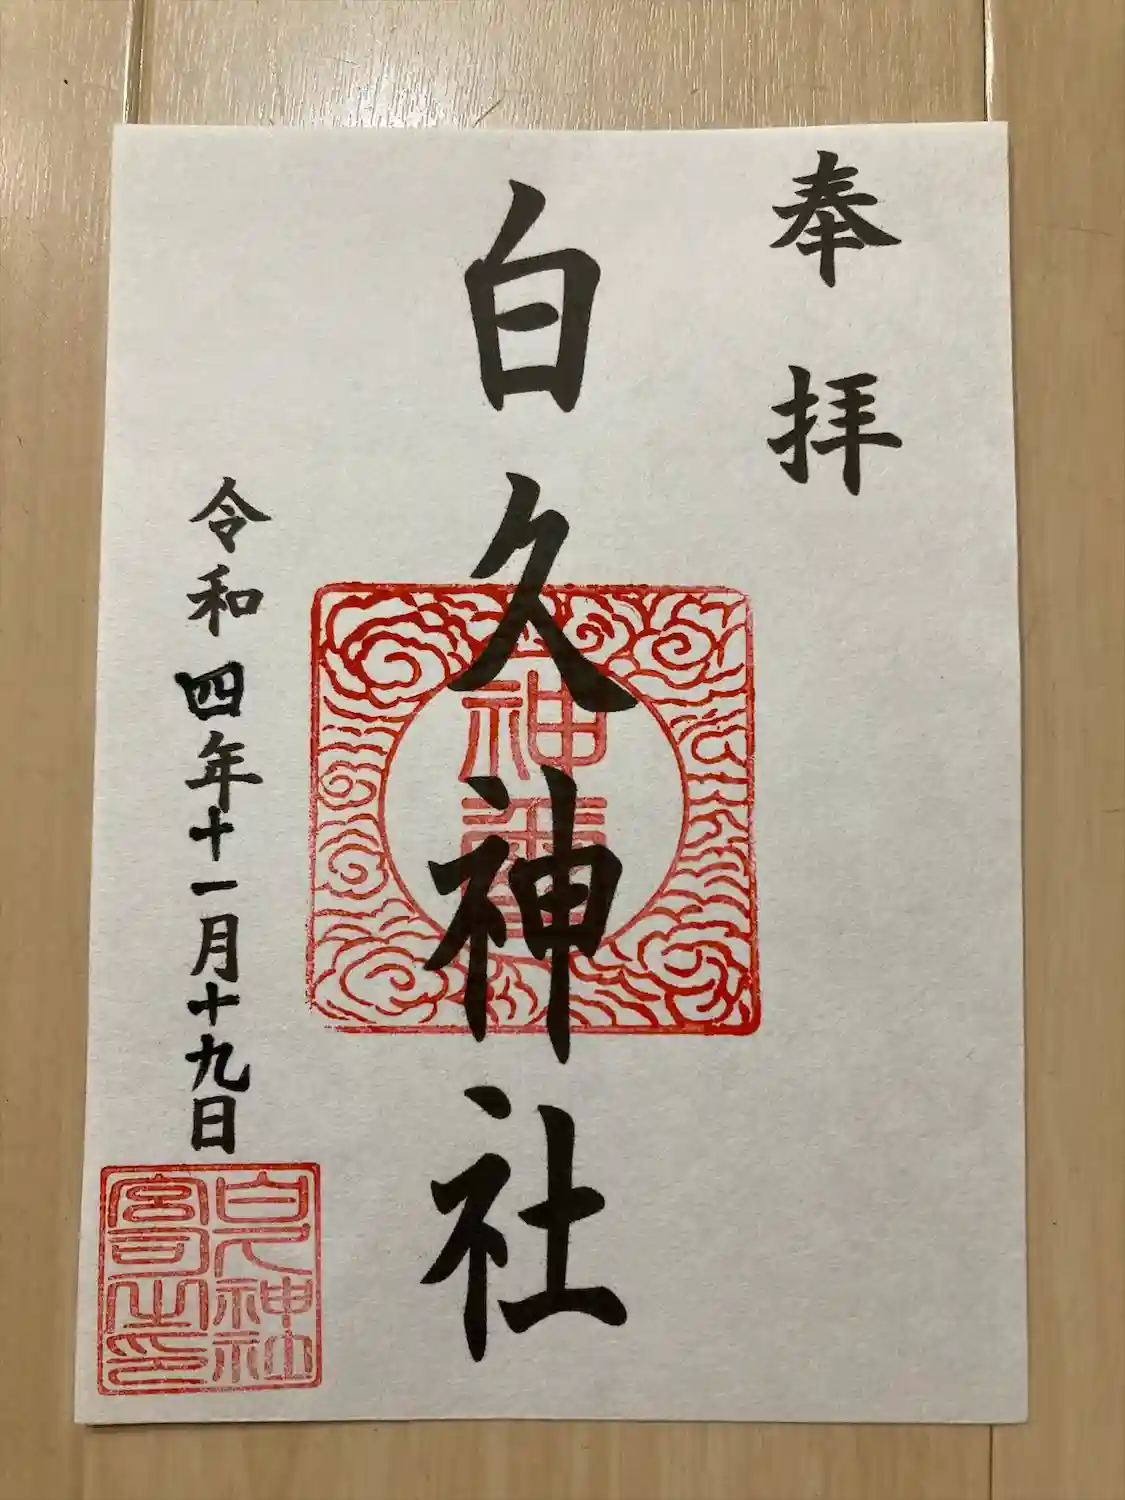 奉拝
白久神社
神璽
令和四年十一月十九日
白久神社
宮司之印